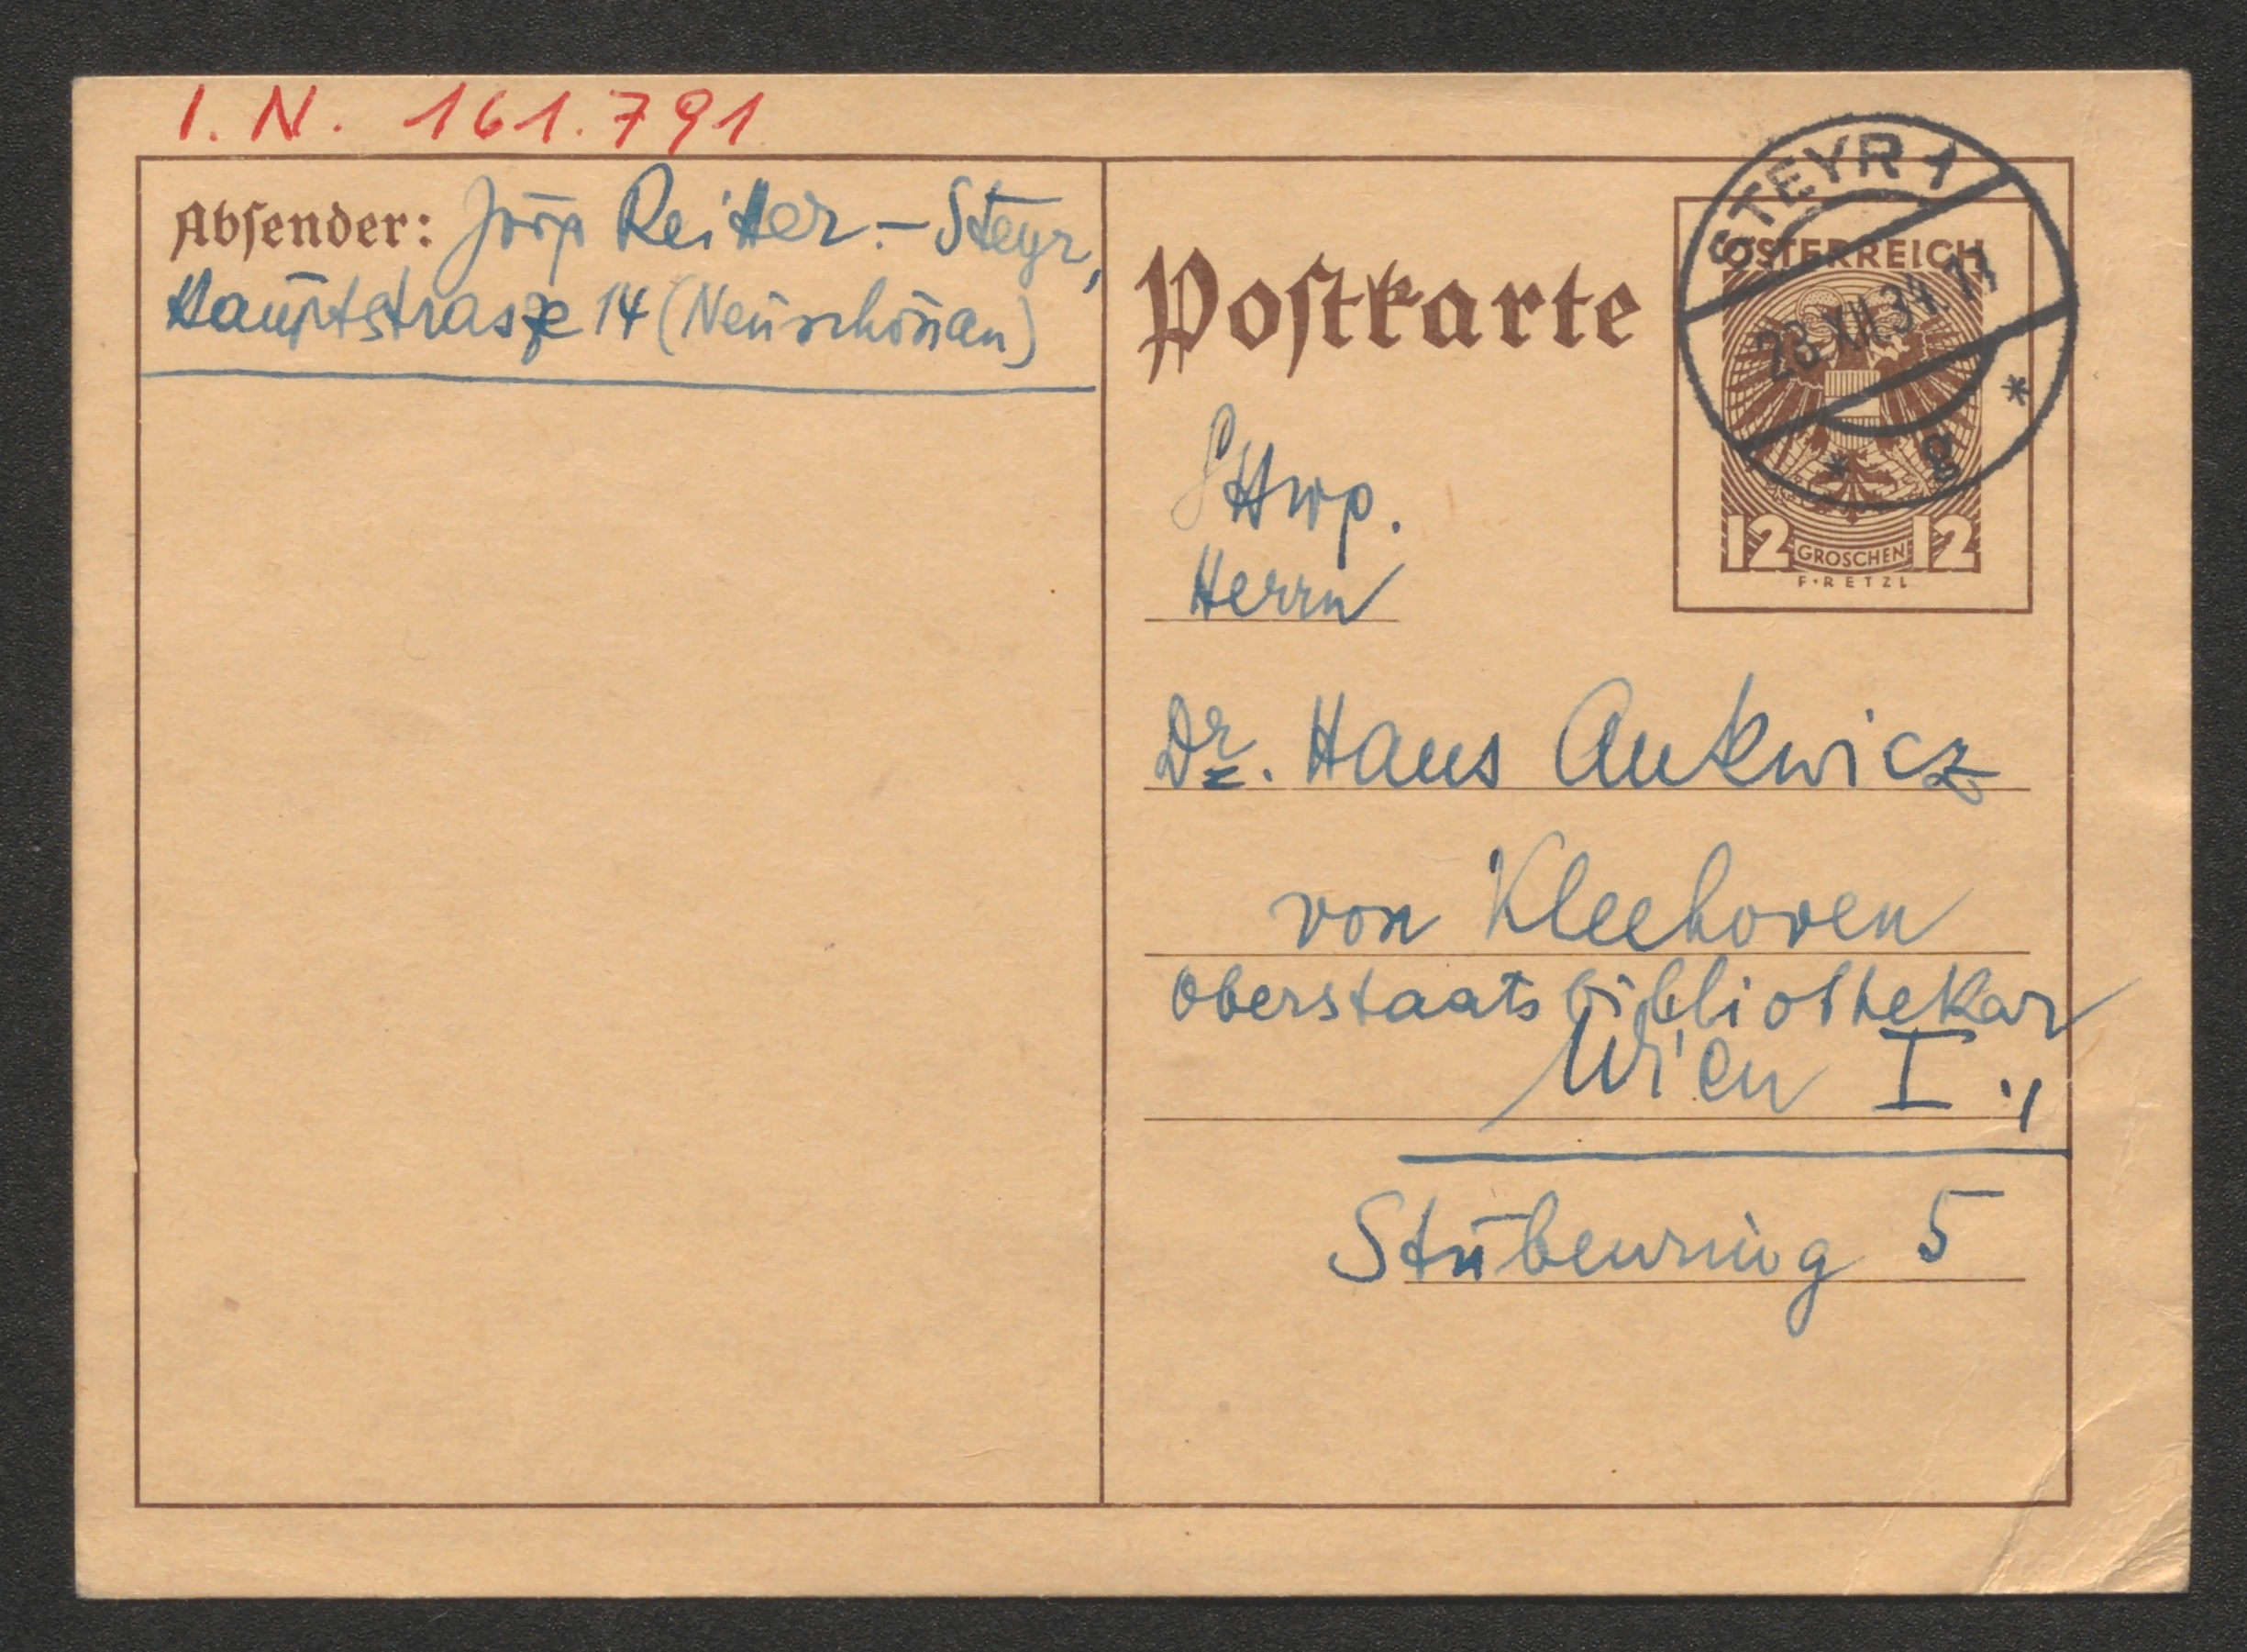 I. N. 161.791
Absender: Jörg Reitter.- Steyr,
Hauptstrasze 14 (Neuschönau)
Postkarte
STEYR 1
28.XII.34.11
* g *
ÖSTERREICH
12 GROSCHEN 12
F·RETZL
Herrn
Dr. Hans Ankwicz
von Kleehoven
Oberstaatsbibliothekar
Wien I.,
Stubenring 5